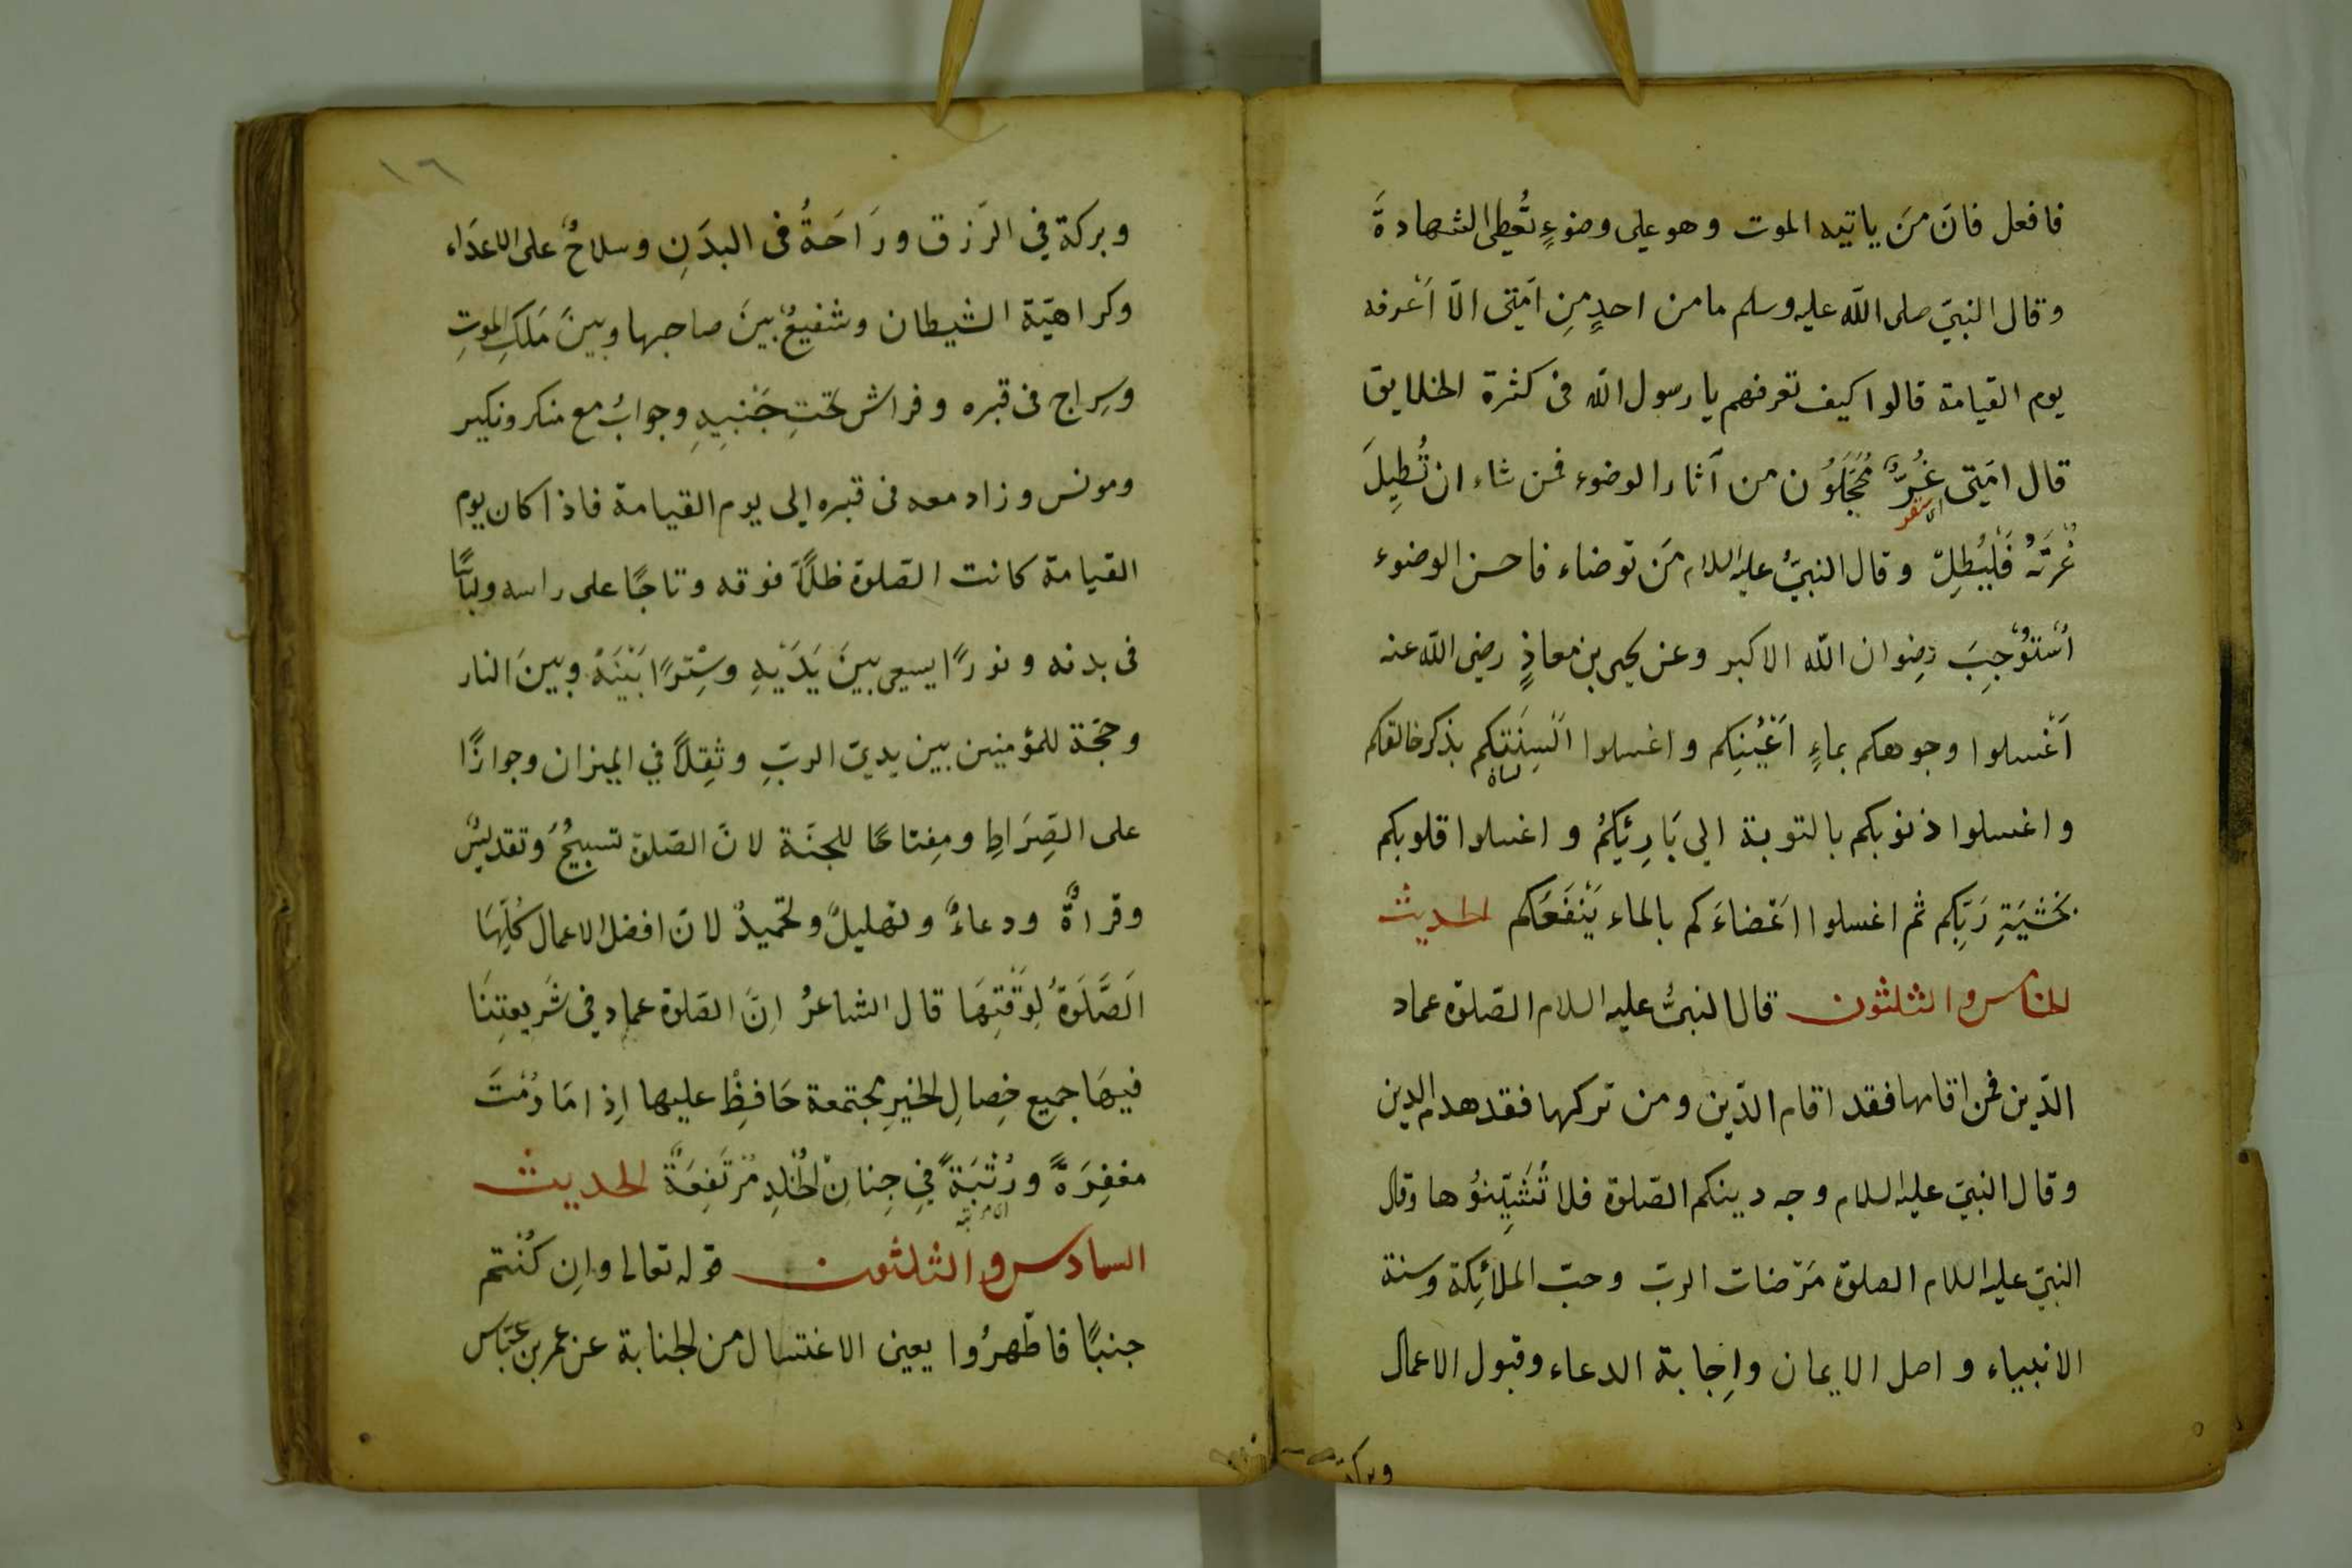 فافعل فانَ مَن ياتيه الموت وهو على وضوءٍ تُعطى الشهادةَ
وقال النبيّ صلى اللّه عليه وسلم مامن احدٍ مِن اُمّتى الّا اَعْرفه
يوم القيامة قالوا كيف تعرفهم يا رسول اللّه فى كثرة الخلايق
قال امّتى غُرٌّ مُحَجَّلوُن من آثار الوضوء فمن شاء ان تُطِيلَ
غُرّتهُ فَلْيُطِلّ وقال النبىّ عليه السلام مَن توضاء فاحسن الوضوء
اُسْتَوُجِبَ رِضوان اللّه الاكبر وعن يحيى بن معاذٍ رضى اللّه عنه
اَغْسلوا وجوهكم بماءٍ اَعْيُنِكم واغسلوا اَلْسِنَتِكم بذكر خالقكم
واغسلوا ذنوبكم بالتوبة الى بَارِئِكُمْ واغسلوا قلوبكم
بخَشْيَةِ رَبِّكم ثم اغسلوا اَعْضاءَكم بالماء يَنْفَعَكم الحديث
الخامس والثلثون قال النبىّ عليه السلام الصّلوة عماد
الدّين فمن اقامها فقد اقام الدّين ومن تركها فقد هدم الدين
وقال النبىّ عليه السلام وجه دينكم الصّلوة فلا تُشَيِّنوُها وقال
النبىّ عليه السلام الصلوة مَرْضات الربّ وحبّ الملائِكة وسنة
الانبياء واصل الايمان واِجابة الدعاء وقبول الاعمال
وبركة
١٦
وبركة في الرّزق ورَاحَةُ فى البدَنِ وسلاحُ على الاعدَاء
وكراهيّة الشيطان وشفيعُ بينَ صاحبها وبينَ مَلَكِ الموتِ
وسِراج فى قبره وفراش تحتِ جَنْبيهِ وجوابُ مع منكر ونكير
ومونس وزاد معه فى قبره الى يوم القيامة فاذا كان يوم
القيامة كانت الصّلوة ظلّاً فوقه وتاجًا على راسه ولباسًا
فى بدنه ونورًا يسعى بينَ يَدَيْهِ وسِتْرًا بَيْنَهُ وبينَ النار
وحُجّة للمؤمنين بين يدىّ الربّ وثِقلاً في الميزان وجوازًا
على الصِّرَاطِ ومِفتاحًا للجنَّة لانّ الصّلوة تسبيحُ وَتقديسُ
وقراةٌ ودعاءٌ وتهليلٌ وتحميدٌ لانّ افضل الاعمال كُلِّهَا
اَلصَّلَوةُ لِوَقْتِهَا قال الشاعرُ اِنَّ الصّلوة عماد في شَريعتِنَا
فيهَا جميع خِصالِ الخيرِ مجتمعة حَافظِْ عليها اِذامَا دُمْتَ
مغفِرَةً ورُتْبَةً فِي جِنانِ الخُلْدِ مُرْتَفِعَةً الحديث
السادس والثلثون قوله تعالى واِن كُنْتم
جنبًا فاطّهرُوا يعنى الاغتسال من الجنابة عن عمر بن عبّاس